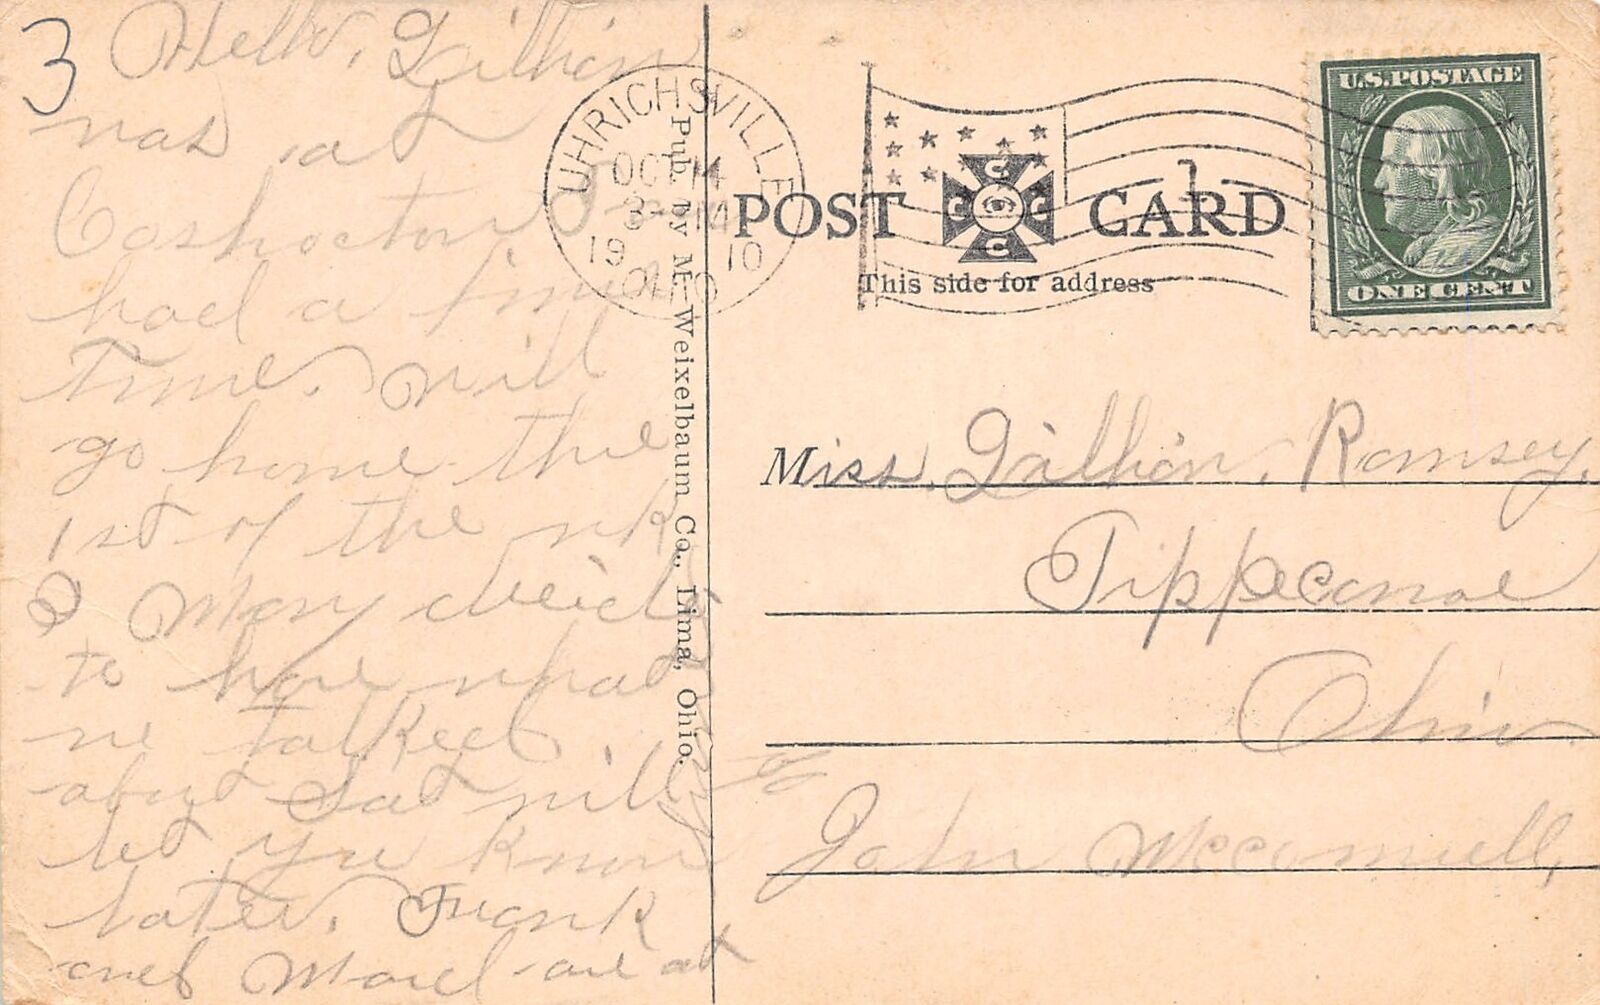 3
Hello, Lillian
was at
Coshocton
had a fine
Time. will
go home the
1st of the wk
Mary
to have what
we talked
about Sat will
let you know
later. Frank
and Maud are at
Pub. by M. Weixelbaum Co., Lima, Ohio.
UHRICHSVILLE
OCT 14
3-
19 10
OHIO
POST CARD
C C C C
1
This side for address
U.S. POSTAGE
ONE CENT
Miss. Lillian. Ramsey.
Tippecanoe
Ohio.
John